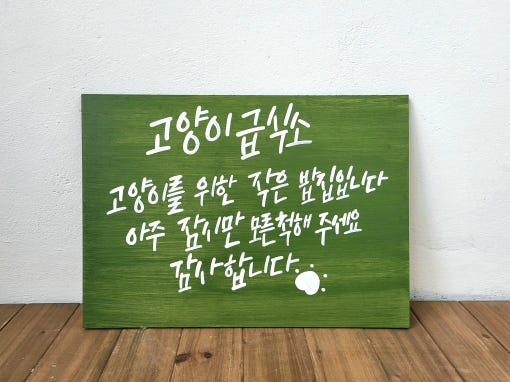 고양이 급식소
고양이를 위한 작은 밥집입니다
아주 잠시만 모른척해 주세요
감사합니다.